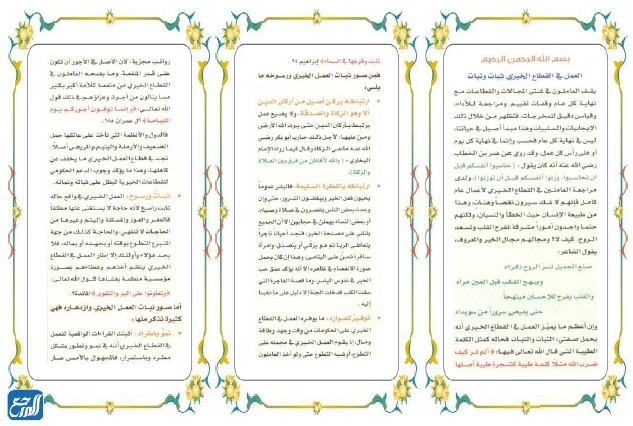 بسم الله الرحمن الرحيم
العمل في القطاع الخيري ثبات ونبات
يقف العاملون في شتى المجالات والقطاعات مع
نهاية كل عام وقفات تقييم ومراجعة للأداء،
وقياس دقيق للمخرجات، فتظهر من خلال ذلك
الإيجابيات والسلبيات وهذا مبدأ أصيل في حياتنا،
ليس في نهاية كل عام فحسب وإنما في نهاية كل يوم
أو على رأس كل عمل، وقد روي عن عمر بن الخطاب
رضي الله عنه أنه كان يقول: (حاسبوا أنفسكم قبل
أن تحاسبوا، وزنوا أنفسكم قبل أن توزنوا)، ولدى
مراجعة العاملين في القطاع الخيري لأعمال عام
كامل فإنهم لا شك سيرون نقصاً وهنات، وهذا
من طبيعة الإنسان حيث الخطأ والنسيان، ولكنهم
حتماً واجدون أموراً مشرقة تفرح القلب وتسعد
الروح، كيف لا؟ ومجالهم مجال الخير والمعروف،
يقول الشاعر:
صنع الجميل تسرّ الروح ذكراه
ويبهج القلب قبل العين مرآه
والقلب يفرح للإحسان مبتهجاً
حتى يفيض سروراً من سويداه
وإن أعظم ما يميّز العمل في القطاع الخيري أنه
يحمل صفتي: الثبات والنبات فحاله كمثل الكلمة
الطيبة التي قال الله تعالى فيها: ﴿ألم تر كيف
ضرب الله مثلاً كلمة طيبة كشجرة طيبة أصلها
ثابت وفرعها في السماء﴾ إبراهيم ٢٤.
فمن صور ثبات العمل الخيري ورسوخه ما
يلي:
ارتباطه بركن أصيل من أركان الدين
ألا وهو الزكاة والصدقة، ولا يضيع عمل
يرتبط بأركان الدين حتى يرث الله الأرض
ومن عليها، لأجل ذلك حارب أبو بكر رضي
الله عنه مانعي الزكاة وقال فيما رواه الإمام
البخاري: (والله لأقاتلن من فرق بين الصلاة
والزكاة).
ارتباطه بالفطرة السليمة، فالبشر عموماً
يحبون فعل الخير ويبغضون الشرور، حتى وإن
وجدت بعض الناس يقصرون في صلاة وصيام،
أو بعض النساء يهملن في حجابهن إلا أن الجميع
يلتقي على مصلحة الخير، فتجد أحياناً تاجراً
يتعاطى الربا ثم هو يزكي أو يتصدق، وامرأة
سافرة تحن على اليتامى، وهذا إن كان يحمل
صورة الانفصام في ظاهره إلا أنه يؤكد عمق حب
الخير في نفوس البشر، وما قصة الفاجرة التي
سقت الكلب فدخلت الجنة إلا دليل على ما ذهبنا
إليه.
توفير للموارد، ما يوفره العمل في القطاع
الخيري على الحكومات من وقت وجهد وطاقة
ومال، إذ يقوم العمل الخيري في مجمله على
التطوع، أو شبه التطوع حتى ولو أخذ العاملون
رواتب مجزية، لأن الأصل في الأجور أن تكون
على قدر المنفعة، وما يقدمه العاملون في
القطاع الخيري من منفعة للأمة أكبر بكثير
مما ينالون من أجرة وعزاؤهم في ذلك قول
الله تعالى: ﴿وإنما توفون أجوركم يوم
القيامة﴾ آل عمران ١٨٥.
فالدول والأنظمة التي تأخذ على عاتقها حمل
الضعيف والأرملة واليتيم والمريض أصلاً،
تجد في قطاع العمل الخيري ما يخفف عن
كاهلها، وهذا ما يؤكد وجوب الدعم الحكومي
للقطاعات الخيرية ليظل على ثباته ونمائه.
ثبات ورسوخ، العمل الخيري في واقع حاله
ثابت راسخ لأنه حاجة لا يستغنى عنها مطلقاً
فالفقر والعوز والمسكنة واليتم وغيرها من
الحاجات لا تنتهي، والحاجة كذلك من جهة
المتبرع المتطوع بوقته أو بجهده أو بماله، فلا
يجد هؤلاء وأولئك إلا إطار العمل في القطاع
الخيري ينظم أخذهم وعطاءهم بصورة
مؤسسية منظمة يغشاها قول الله تعالى:
﴿وتعاونوا على البر والتقوى﴾ المائدة ٢.
أما صور نبات العمل الخيري وازدهاره فهي
كثيرة نذكر منها:
نمو باطراد، أثبتت القراءات الواقعية للعمل
في القطاع الخيري أنه في نمو وتطور بشكل
مطرد وباستمرار، فالمجهول بالأمس صار
المرجع